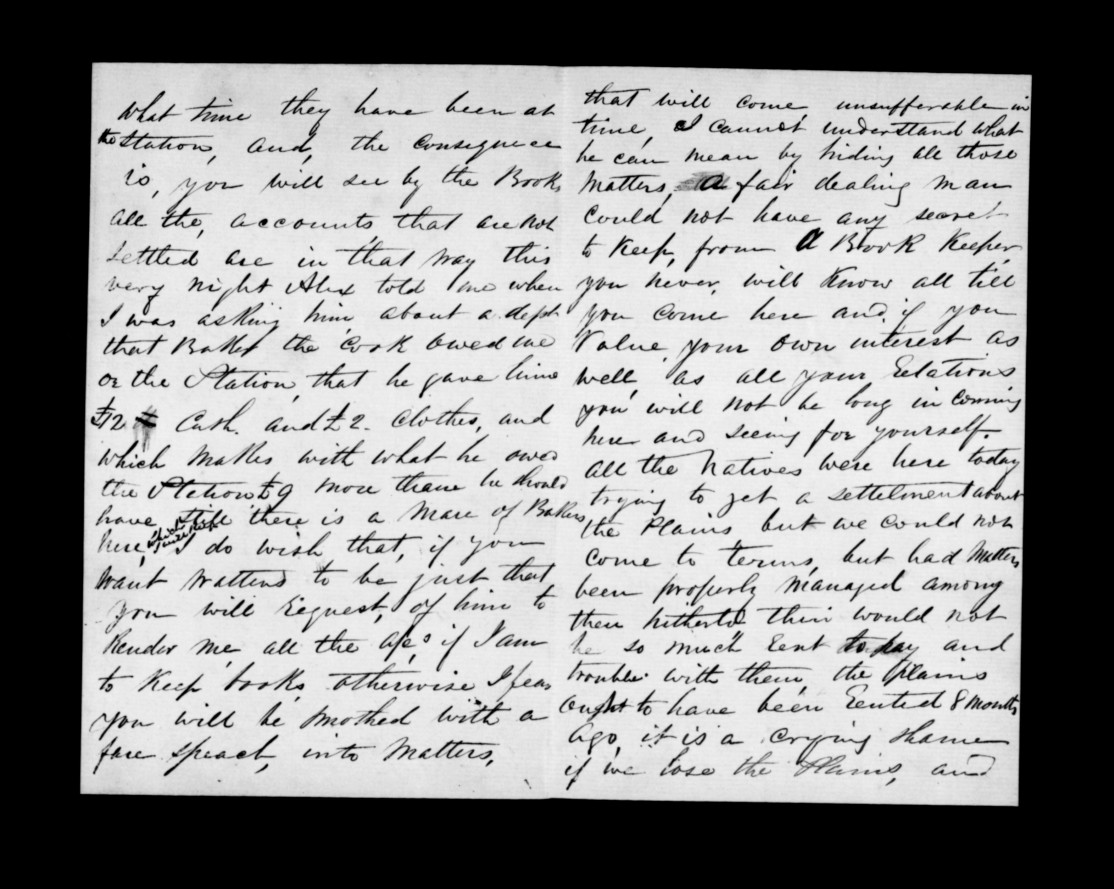 what time they have been at
the Station, and, the consequence
is, you will see by the Books
all the, accounts that are not
settled are in that way this
very night Alex told me when
I was asking him about a dept
that Baker the Cook owed me
or the Station, that he gave him
£12 Cash. and £2. Clothes, and
which makes with what he owes
the Station £9 more thane he should
have, still there is a Mare of Bakers
here, I do wish that, if you
want matters to be just that
you will request, of him to
Render me all the a/cs if I am
to Keep books, otherwise I fear
you will be smothed with a
fare speach, into Matters,
that will come unsufferable in
time, I cannot understand what
he can mean by hiding all those
Matters, A fair dealing man
could not have any secret
to Keep, from A Book Keeper
you never, will Know all till
you come here and, if you
Value your own interest as
well, as all your Relations
you will not be long in coming
here and seeing for yourself.
all the Natives were here today
trying to get a settelment about
the Plains but we could not
come to terms, but had Matters
been properly managed among
them hitherto their would not
be so much Rent to pay and
trouble with them, the plains
ought to have been Rented 8 months
ago, it is a crying shame
if we lose the Plains, and